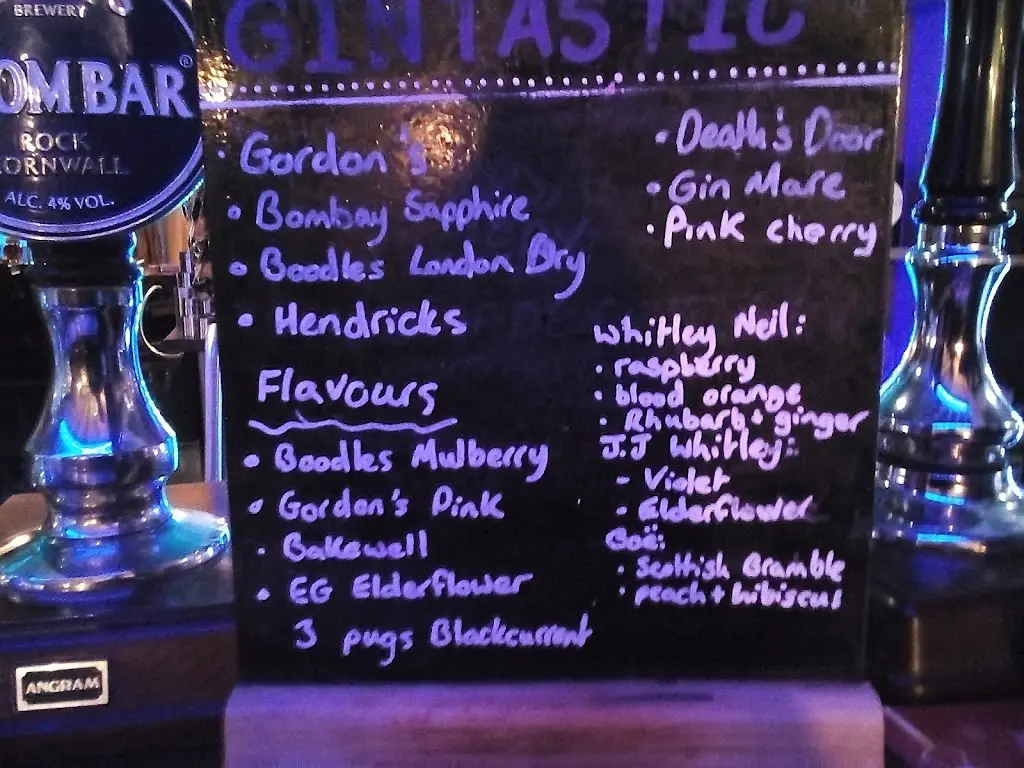 BREWERY
OMBAR®
ROCK
CORNWALL
ALC. 4% VOL.
ANGRAM
GINTASTIC
• Gordon's
• Bombay Sapphire
• Boodles London Dry
• Hendricks
Flavours
• Boodles Mulberry
• Gordon's Pink
• Bakewell
• EG Elderflower
3 pugs Blackcurrent
• Death's Door
• Gin Mare
• Pink cherry
Whitley Neil:
• raspberry
• blood orange
• Rhubarb + ginger
J.J Whitley:
- Violet
- Elderflower
Boë:
• Scottish Bramble
• peach + hibiscus